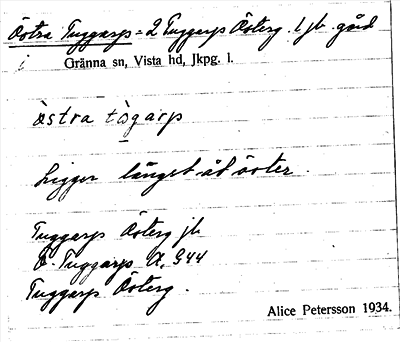 Östra Tuggarp = 2 Tuggarp Österg. 1 jb. gård
i Gränna sn, Vista hd, Jkpg. l.
östra tògarp
Ligger längst åt öster.
Tuggarp Österg jb
Ö. Tuggarp GA, 944
Tuggarp Österg.
Alice Petersson 1934.